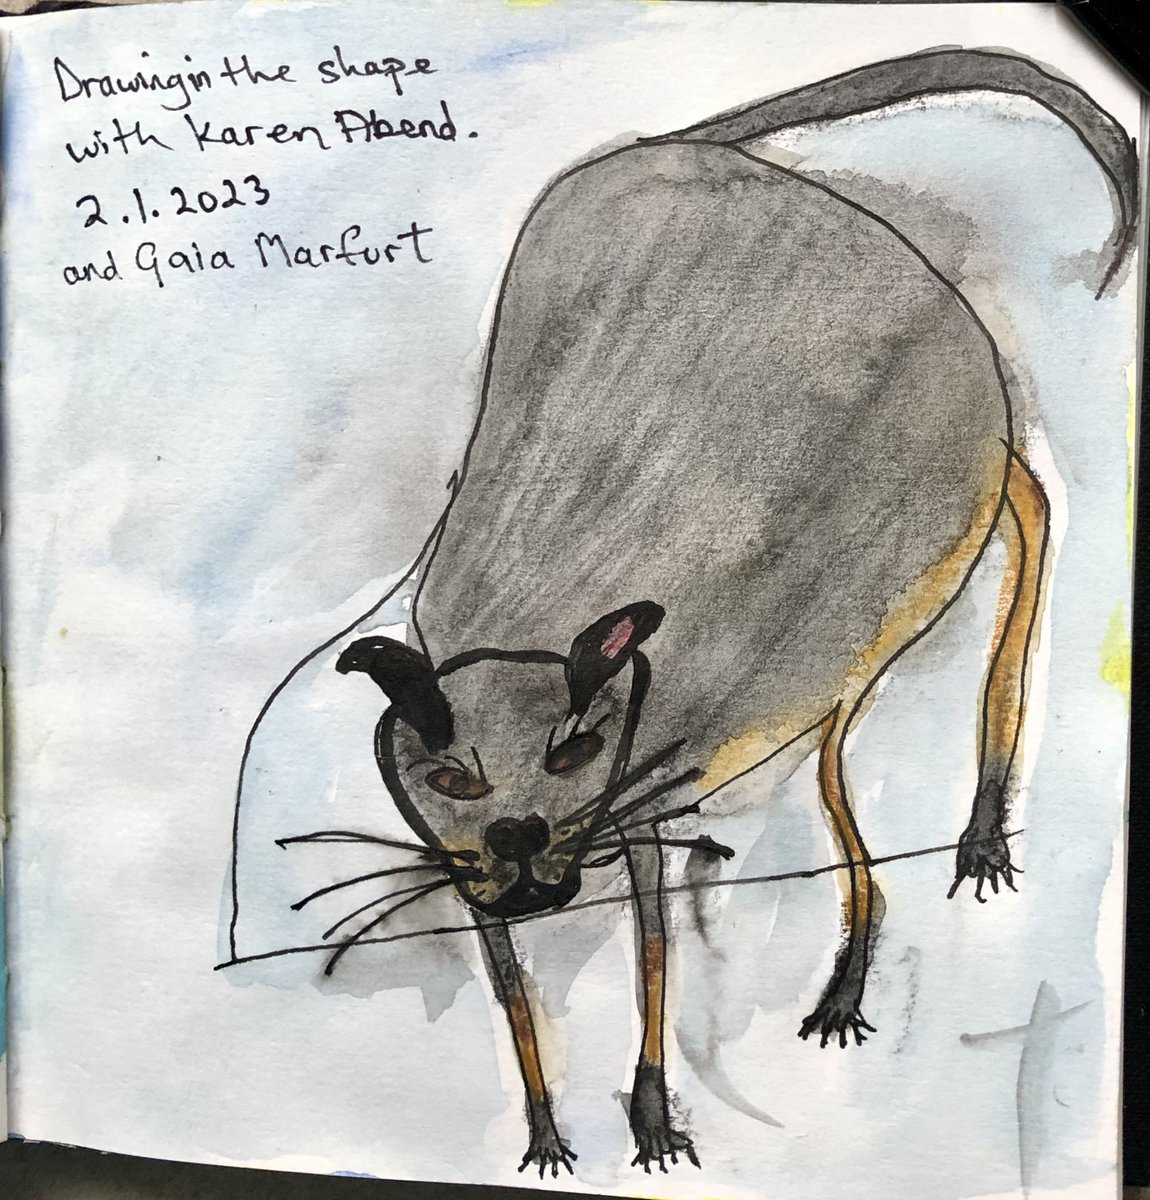 Drawing in the shape
with Karen Abend.
2.1.2023
and Gaia Marfurt